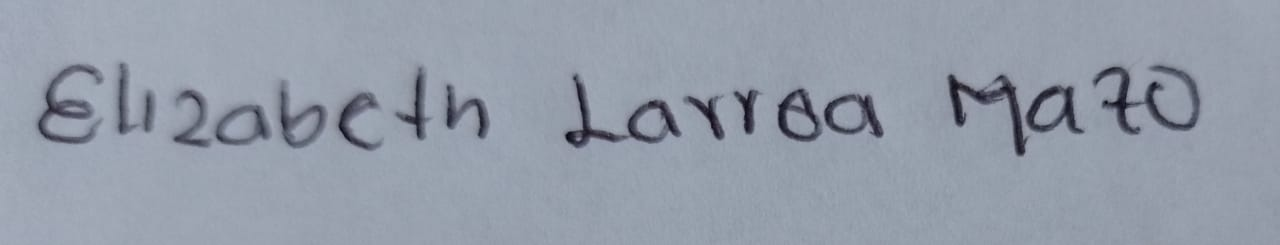 Elizabeth Larrea Mazo